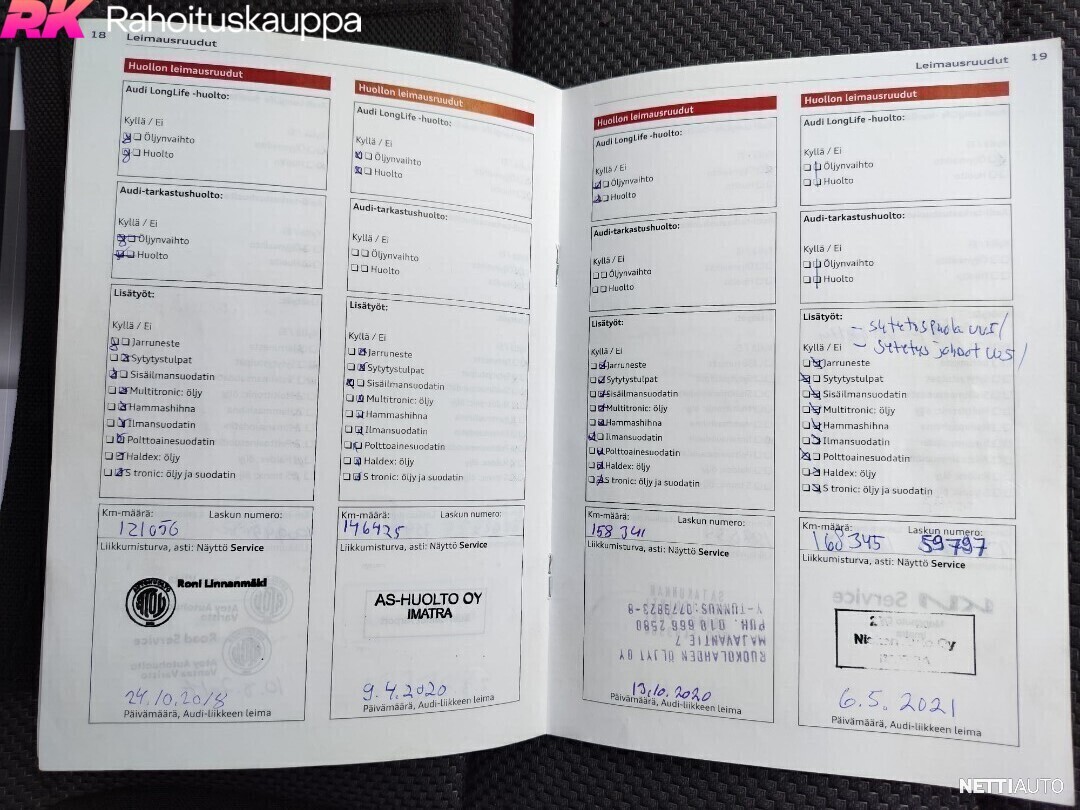 RK Rahoituskauppa
18 Leimausruudut
Huollon leimausruudut
Audi LongLife -huolto:
Kyllä / Ei
Öljynvaihto
Huolto
Audi-tarkastushuolto:
Kyllä / Ei
Öljynvaihto
Huolto
Lisätyöt:
Kyllä / Ei
Jarruneste
Sytytystulpat
Sisäilmansuodatin
Multitronic: öljy
Hammashihna
Ilmansuodatin
Polttoainesuodatin
Haldex: öljy
S tronic: öljy ja suodatin
Km-määrä: Laskun numero:
121056
Liikkumisturva, asti: Näyttö Service
Roni Linnanmäki
24.10.2018
Päivämäärä, Audi-liikkeen leima
Huollon leimausruudut
Audi LongLife -huolto:
Kyllä / Ei
Öljynvaihto
Huolto
Audi-tarkastushuolto:
Kyllä / Ei
Öljynvaihto
Huolto
Lisätyöt:
Kyllä / Ei
Jarruneste
Sytytystulpat
Sisäilmansuodatin
Multitronic: öljy
Hammashihna
Ilmansuodatin
Polttoainesuodatin
Haldex: öljy
S tronic: öljy ja suodatin
Km-määrä: Laskun numero:
146425
Liikkumisturva, asti: Näyttö Service
AS-HUOLTO OY
IMATRA
9.4.2020
Päivämäärä, Audi-liikkeen leima
Leimausruudut 19
Huollon leimausruudut
Audi LongLife -huolto:
Kyllä / Ei
Öljynvaihto
Huolto
Audi-tarkastushuolto:
Kyllä / Ei
Öljynvaihto
Huolto
Lisätyöt:
Kyllä / Ei
Jarruneste
Sytytystulpat
Sisäilmansuodatin
Multitronic: öljy
Hammashihna
Ilmansuodatin
Polttoainesuodatin
Haldex: öljy
S tronic: öljy ja suodatin
Km-määrä: Laskun numero:
158 341
Liikkumisturva, asti: Näyttö Service
RUOKOLAHDEN ÖLJYT OY
MAJAVANTIE 7
PUH. 010 666 2580
Y-TUNNUS:0779823-8
13.10.2020
Päivämäärä, Audi-liikkeen leima
Huollon leimausruudut
Audi LongLife -huolto:
Kyllä / Ei
Öljynvaihto
Huolto
Audi-tarkastushuolto:
Kyllä / Ei
Öljynvaihto
Huolto
Lisätyöt: - sytytyspuola uusi
Kyllä / Ei - sytytys johdot uusi
Jarruneste
Sytytystulpat
Sisäilmansuodatin
Multitronic: öljy
Hammashihna
Ilmansuodatin
Polttoainesuodatin
Haldex: öljy
S tronic: öljy ja suodatin
Km-määrä: Laskun numero:
168345 59797
Liikkumisturva, asti: Näyttö Service
Oy
6.5.2021
Päivämäärä, Audi-liikkeen leima
NETTIAUTO